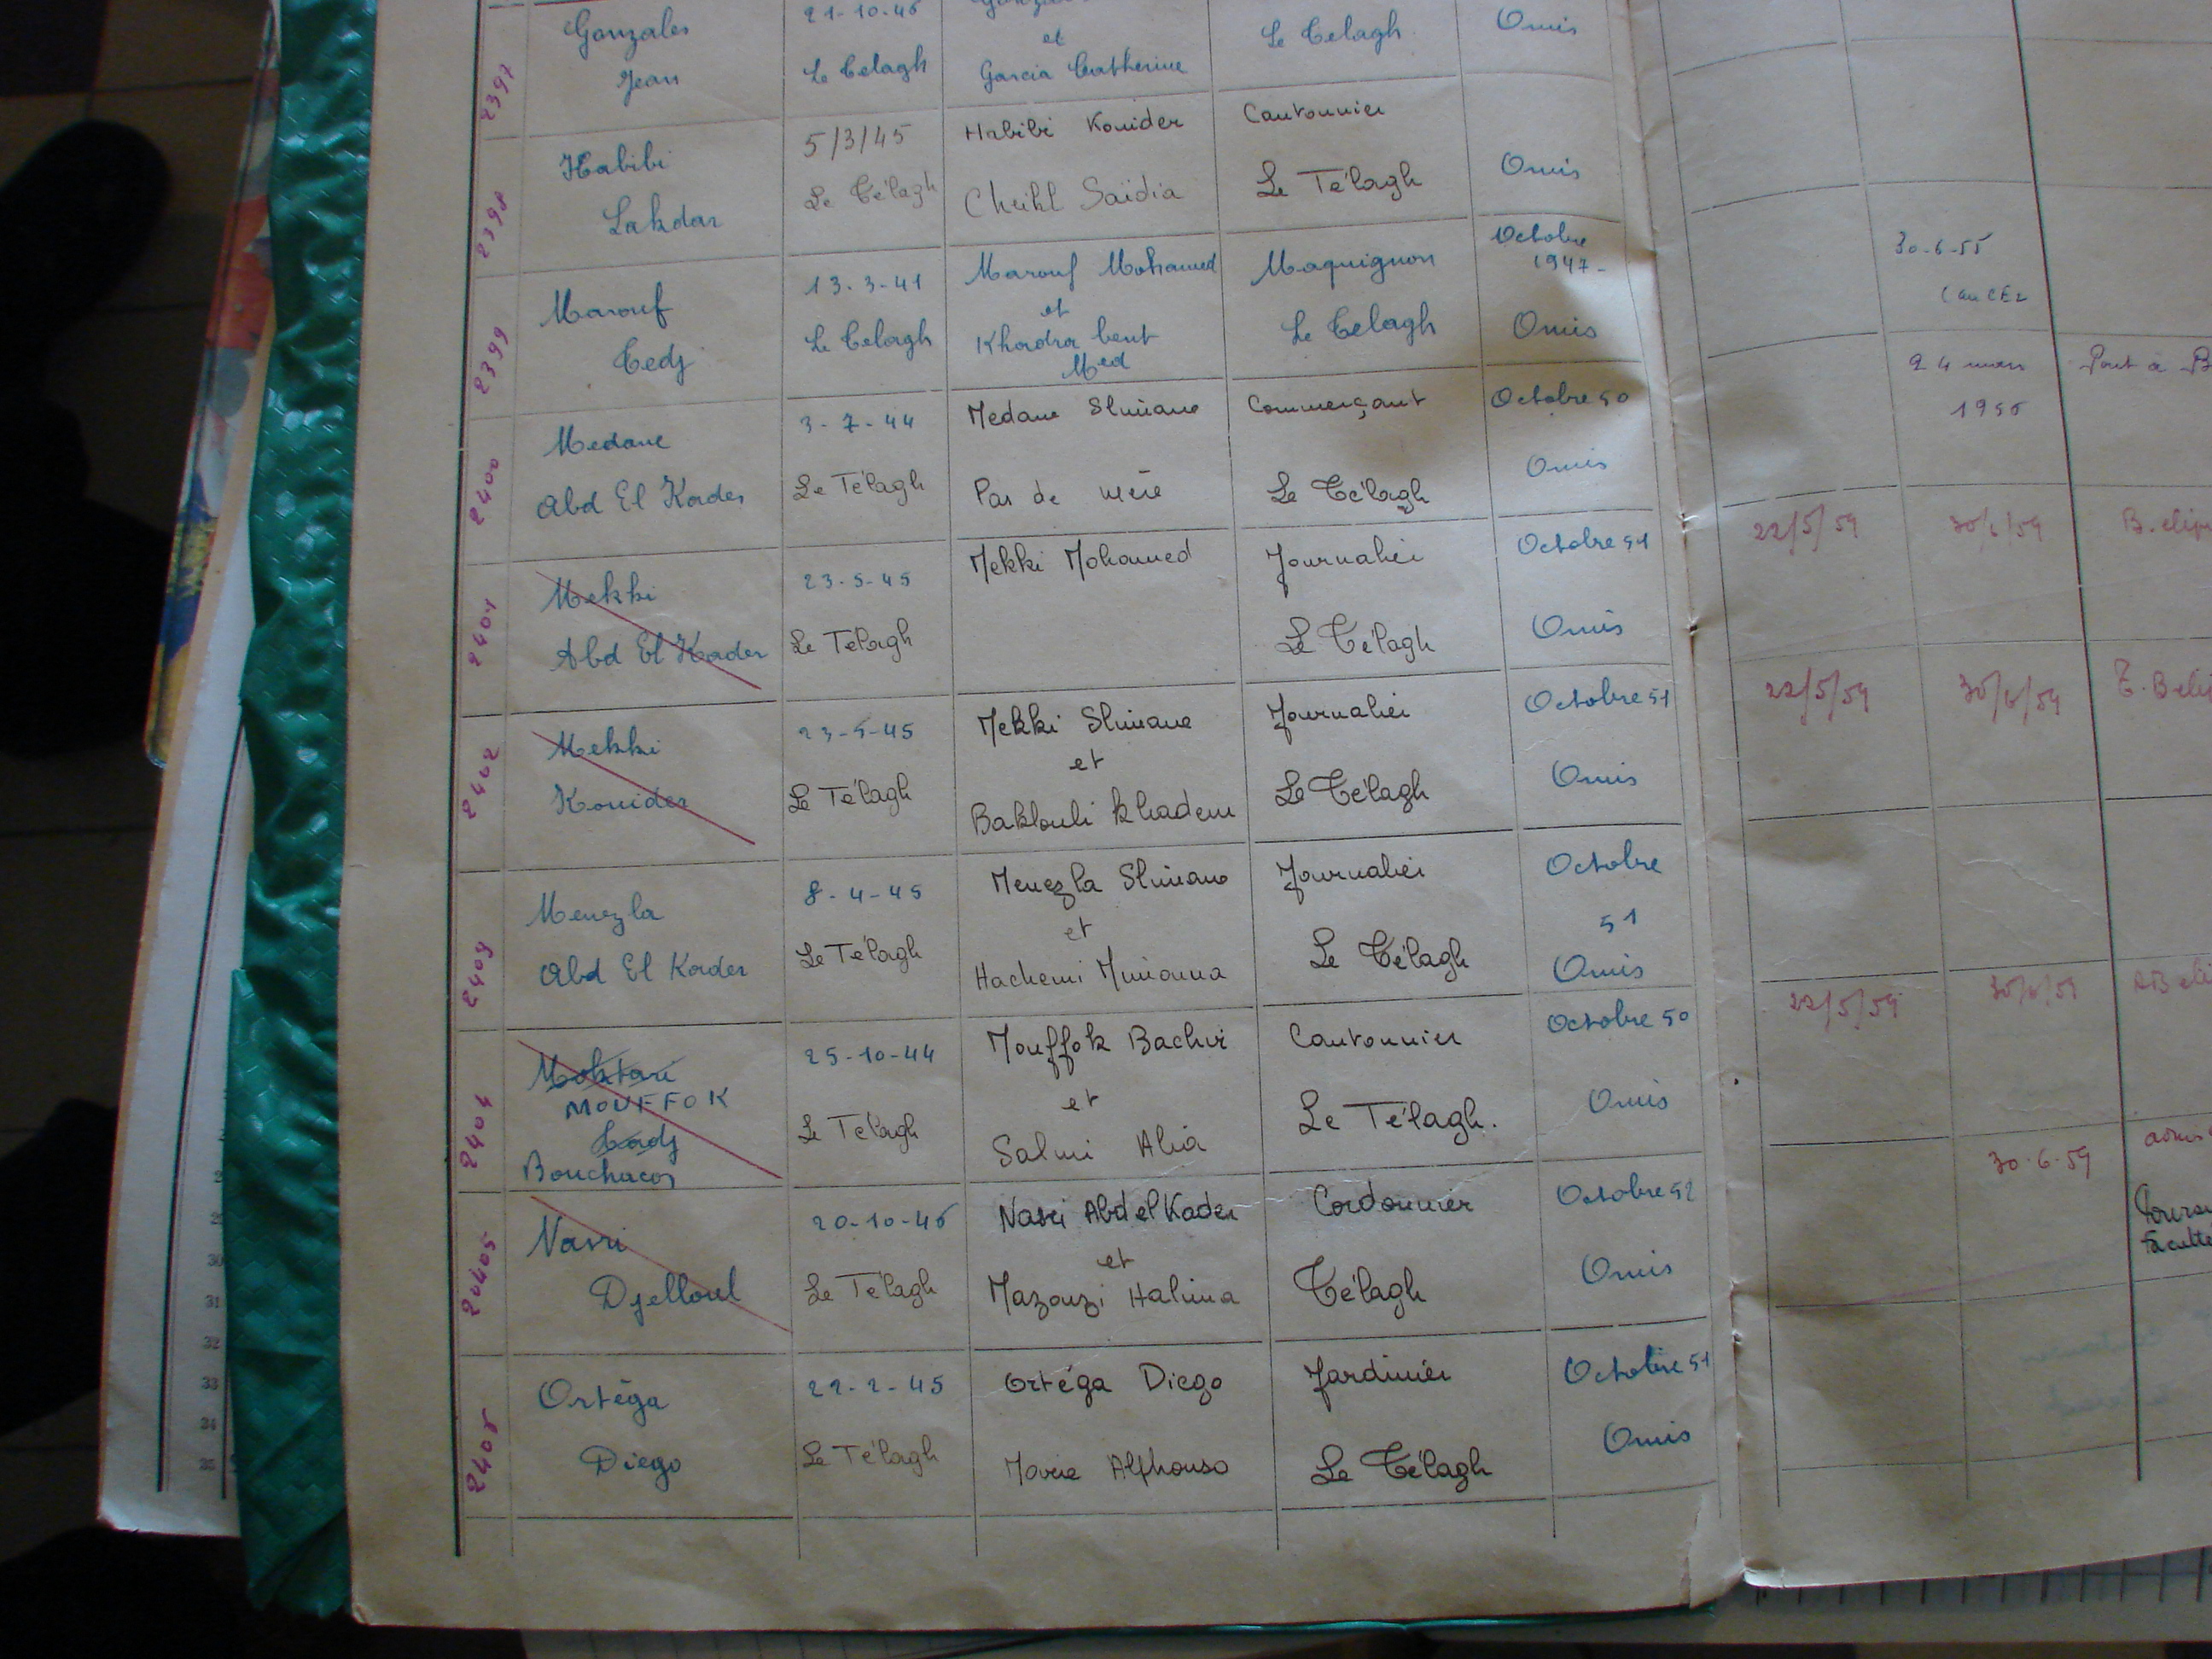 2397
Gonzales
Jean
21-10-46
Le Telagh
et
Garcia Catherine
Le Telagh
Omis
2398
Habibi
Lakdar
5/3/45
Le Télagh
Habibi Kouider
Cheikl Saïdia
Cantonnier
Le Télagh
Omis
2399
Marouf
Tedj
13-3-41
Le Telagh
Marouf Mohamed
et
Khadra bent
Med
Maquignon
Le Telagh
Octobre
1947-
Omis
30-6-55
( au CE2
2400
Medane
Abd El Kader
3-7-44
Le Télagh
Medane Slimane
Pas de mère
Commerçant
Le Télagh
Octobre 50
Omis
24 mars
1956
2401
Mekki
Abd El Kader
23-5-45
Le Télagh
Mekki Mohamed
Journalier
Le Télagh
Octobre 51
Omis
22/5/59
30/6/59
2402
Mekki
Kouider
23-5-45
Le Télagh
Mekki Slimane
et
Baklouli Khadem
Journalier
Le Télagh
Octobre 51
Omis
22/5/59
30/6/59
2403
Menezla
Abd El Kader
8-4-45
Le Télagh
Menezla Slimane
et
Hachemi Mimouna
Journalier
Le Télagh
Octobre
51
Omis
2404
Moktari
MOUFFOK
Tadj
Bouchacor
25-10-44
Le Télagh
Mouffok Bachir
et
Salmi Alia
Cantonnier
Le Télagh.
Octobre 50
Omis
22/5/59
30/6/59
2405
Nasri
Djelloul
20-10-46
Le Télagh
Nasri AbdelKader
et
Mazouzi Halima
Cordonnier
Télagh
Octobre 52
Omis
30-6-59
Ortéga
Diego
22-2-45
Le Télagh
Ortéga Diego
Marie Alphonso
Jardinier
Le Télagh
Octobre 51
Omis
30
31
32
33
34
35